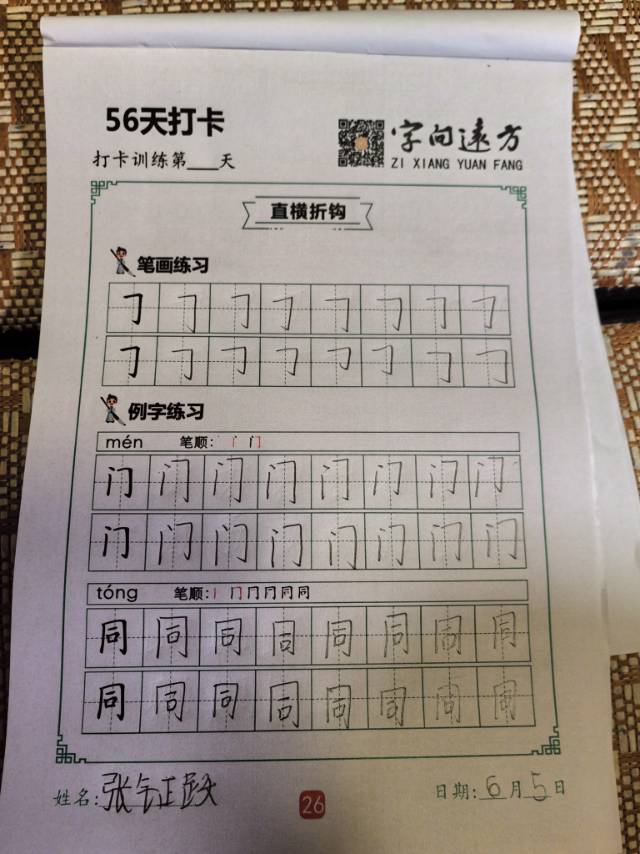 56天打卡
打卡训练第___天
字向远方
ZI XIANG YUAN FANG
直横折钩
笔画练习
㇆ ㇆ ㇆ ㇆ ㇆ ㇆ ㇆ ㇆
㇆ ㇆ ㇆ ㇆ ㇆ ㇆ ㇆ ㇆
例字练习
mén 笔顺:
门 门 门 门 门 门 门 门
门 门 门 门 门 门 门 门
tóng 笔顺: 丨 冂 冂 冂 同 同
同 同 同 同 同 同 同 同
同 同 同 同 同 同 同 同
姓名: 张
26
日期: 6月5日